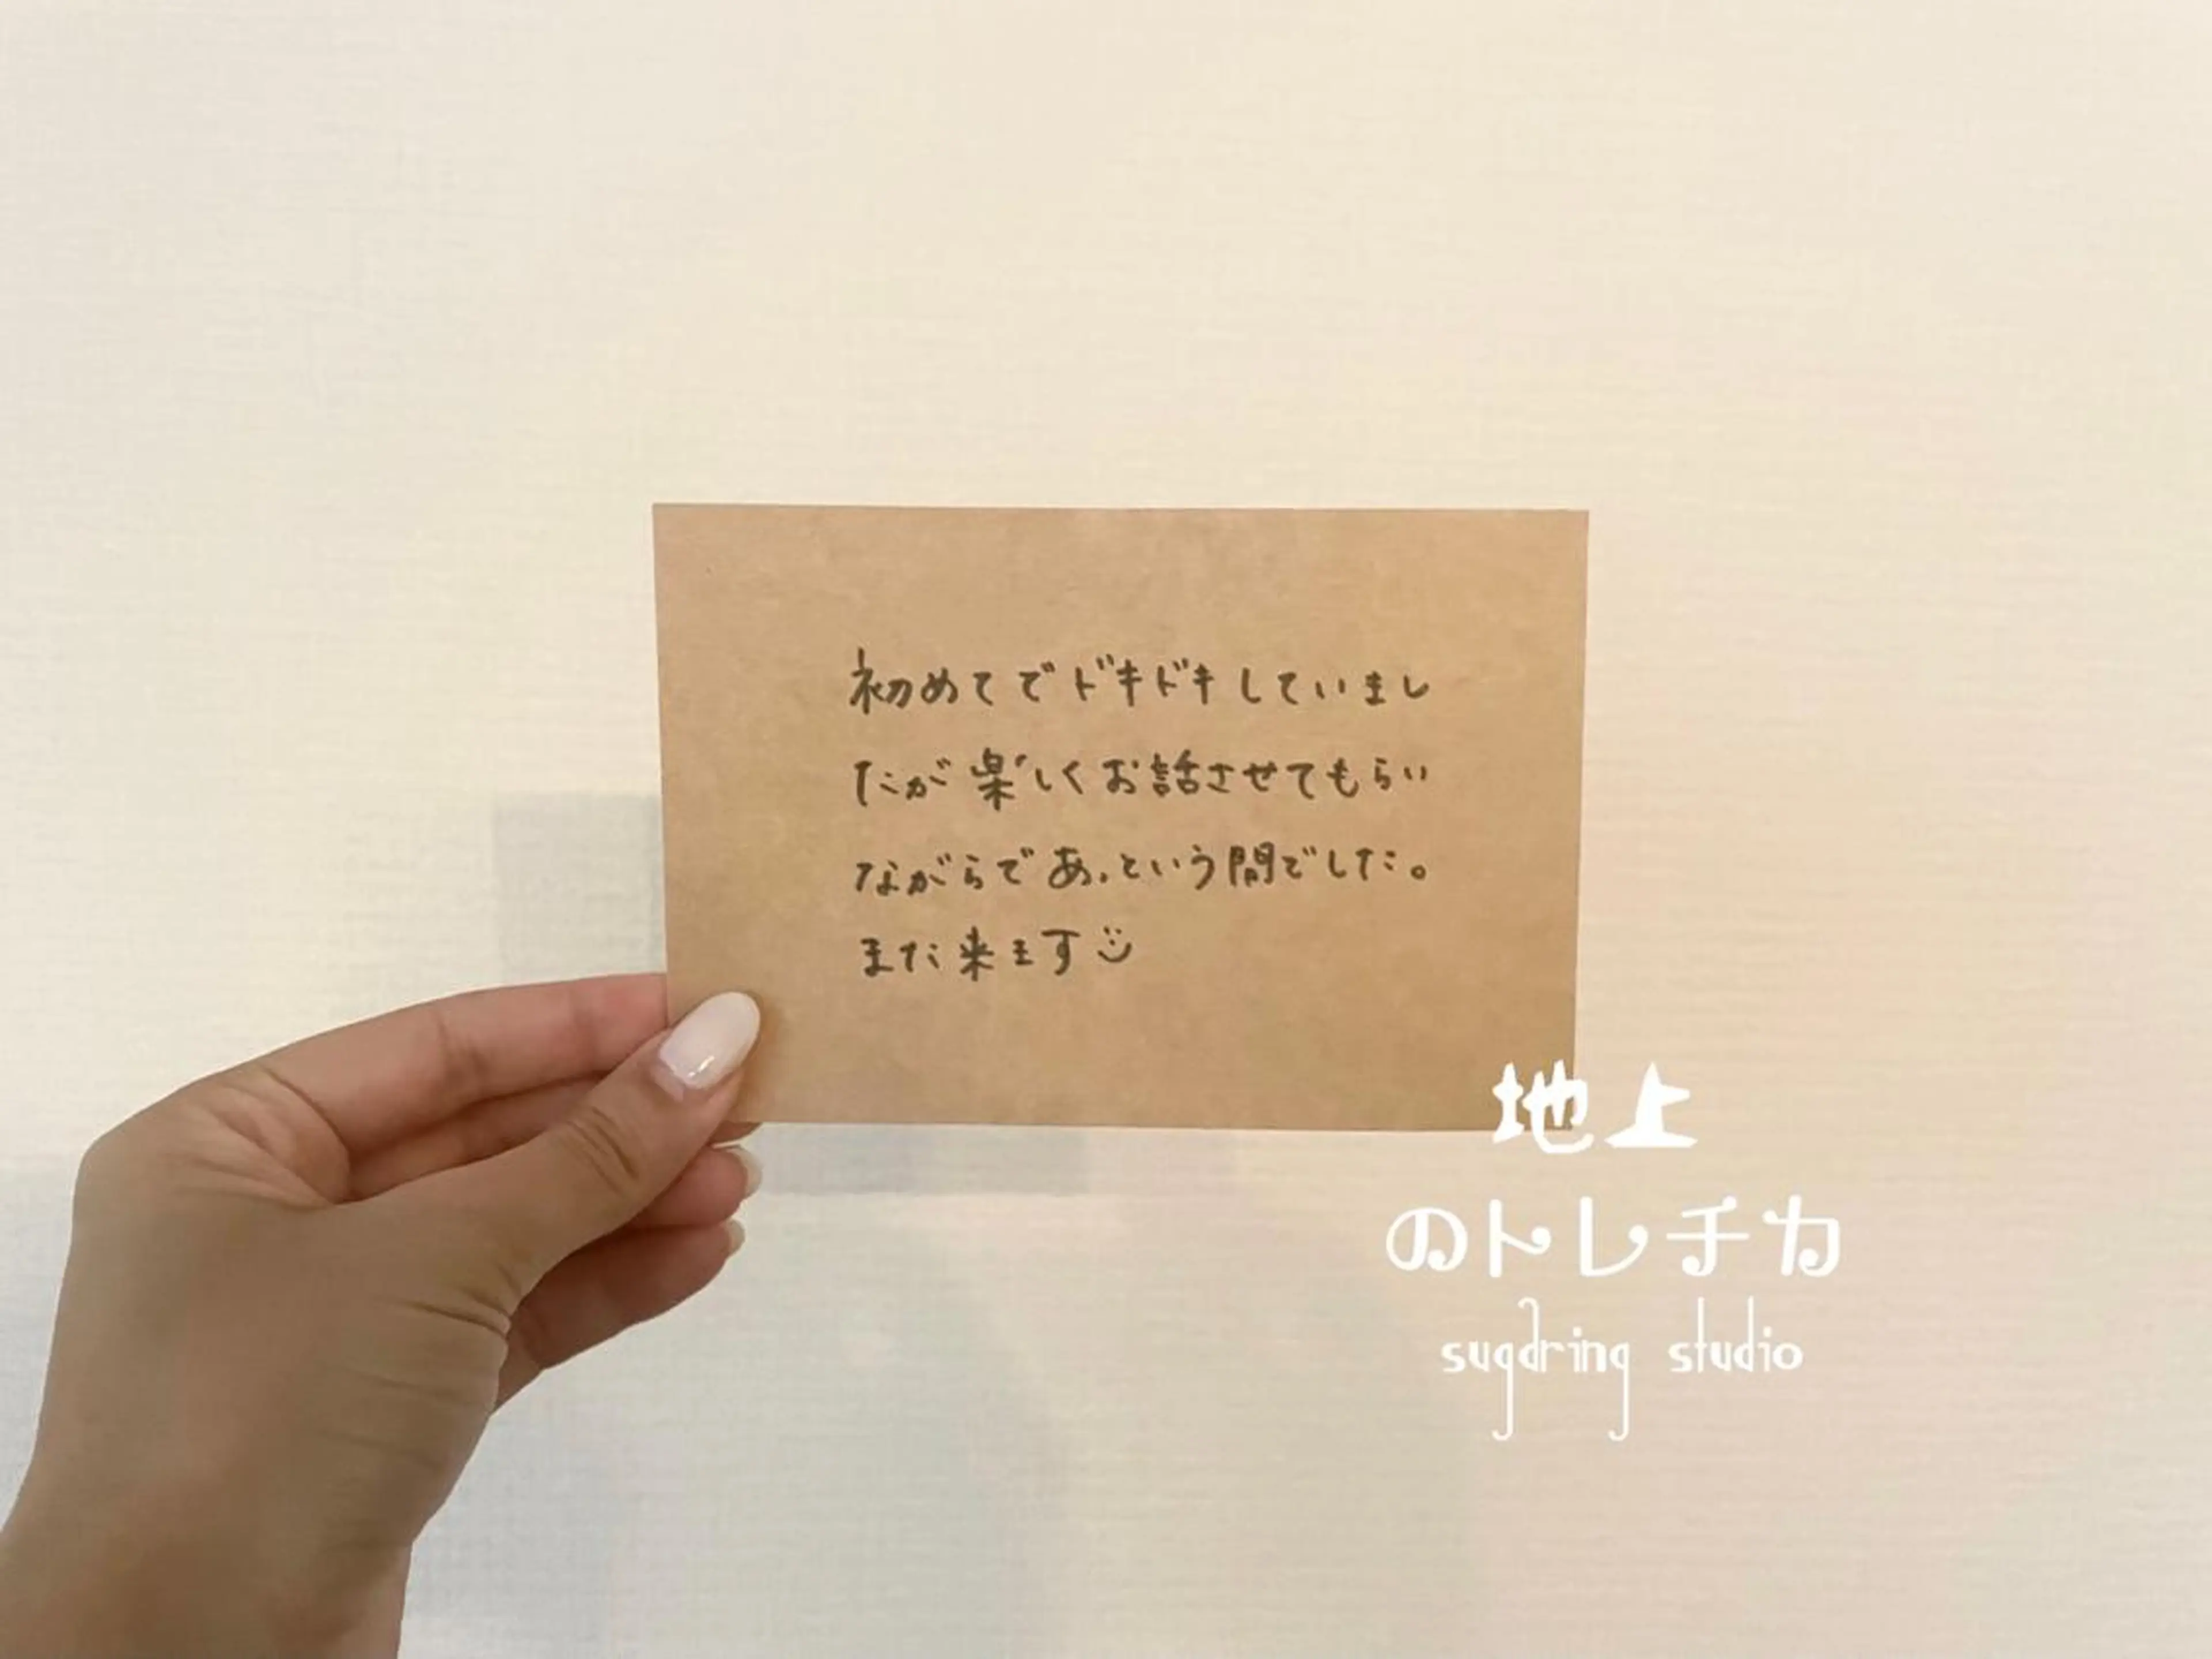 初めてでドキドキしていまし
たが楽しくお話させてもらい
ながらであっという間でした。
また来ます
地上
のトレチカ
sugdring studio